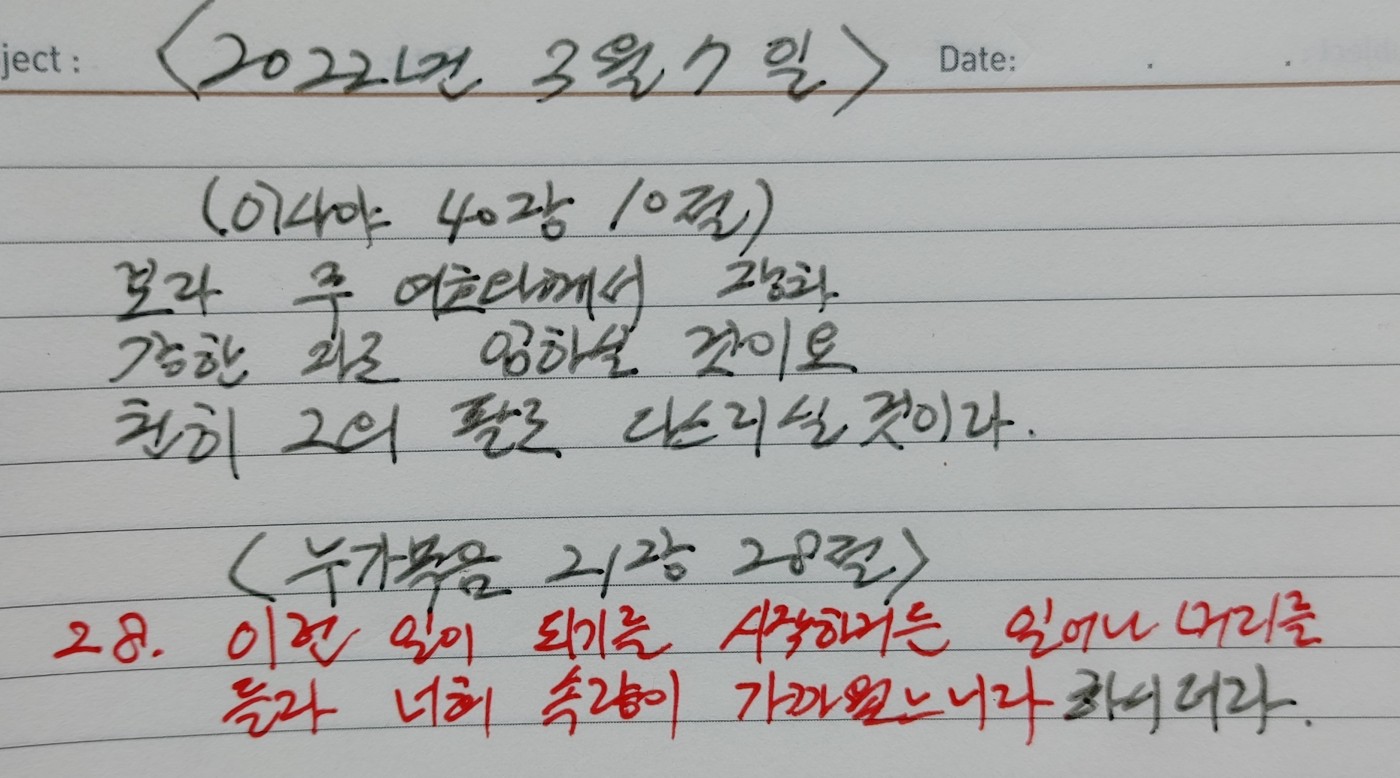 ject : <2022년 3월 7일> Date: . .
(이사야 40장 10절)
보라 주 여호와께서 장차
강한 자로 임하실 것이요
친히 그의 팔로 다스리실 것이라.
<누가복음 21장 28절>
28. 이런 일이 되기를 시작하거든 일어나 머리를
들라 너희 속량이 가까웠느니라 하시더라.